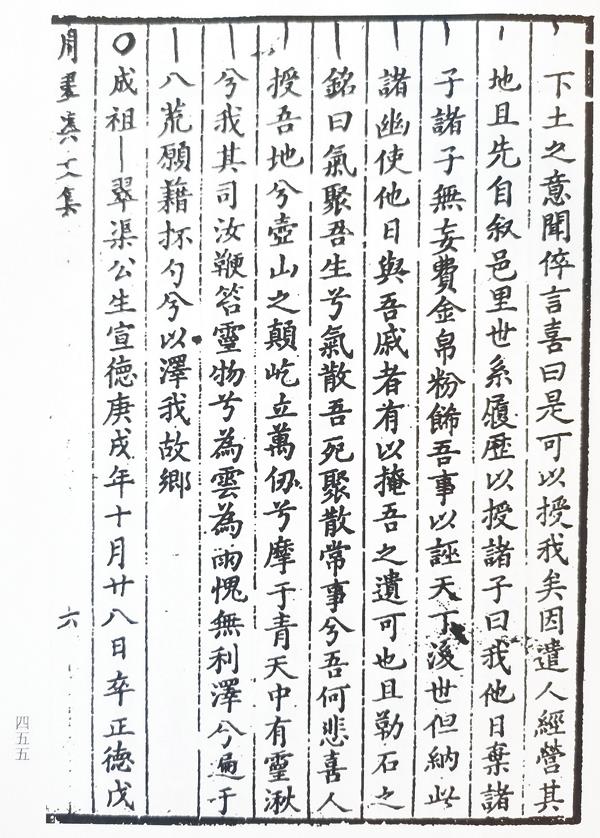 下土之意聞倅言喜曰是可以授我矣因遣人經營其
地且先自叙邑里世系履歷以授諸子曰我他日棄諸
子諸子無妄費金帛粉飾吾事以誣天下後世但納此
諸幽使他日與吾戚者有以掩吾之遺可也且勒石之
銘曰氣聚吾生兮氣散吾死聚散常事兮吾何悲喜人
授吾地兮壺山之顛屹立萬仞兮摩于青天中有靈湫
兮我其司汝鞭笞靈物兮為雲為雨愧無利澤兮遍于
八荒願藉抔勺兮以澤我故鄉
〇成祖丨翠渠公生宣德庚戌年十月廿八日卒正德戊
周
集
六
四五五